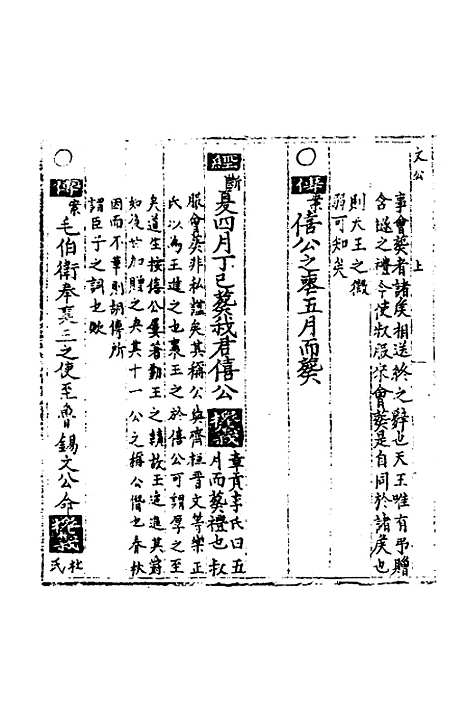 文公 上
事會葬者諸侯相送終之辭也天王唯有弔贈
含襚之禮今使叔服來會葬是自同於諸侯也
則天王之微
弱可知矣
○傳案僖公之薨五月而葬
經斷夏四月丁巳葬我君僖公 章貢李氏曰五
月而葬禮也叔
服會葬非私諡矣其稱公與齊桓晉文等樂正
氏以為王進之也襄王之於僖公可謂厚之至
矣道生按僖公屢著勤王之績故王追進其爵
如後世加贈之典其十一公之稱公僭也春秋
因而不革則胡傳所
謂臣子之詞也歟
○傳案毛伯衛奉襄王之使至魯錫文公命 杜
氏